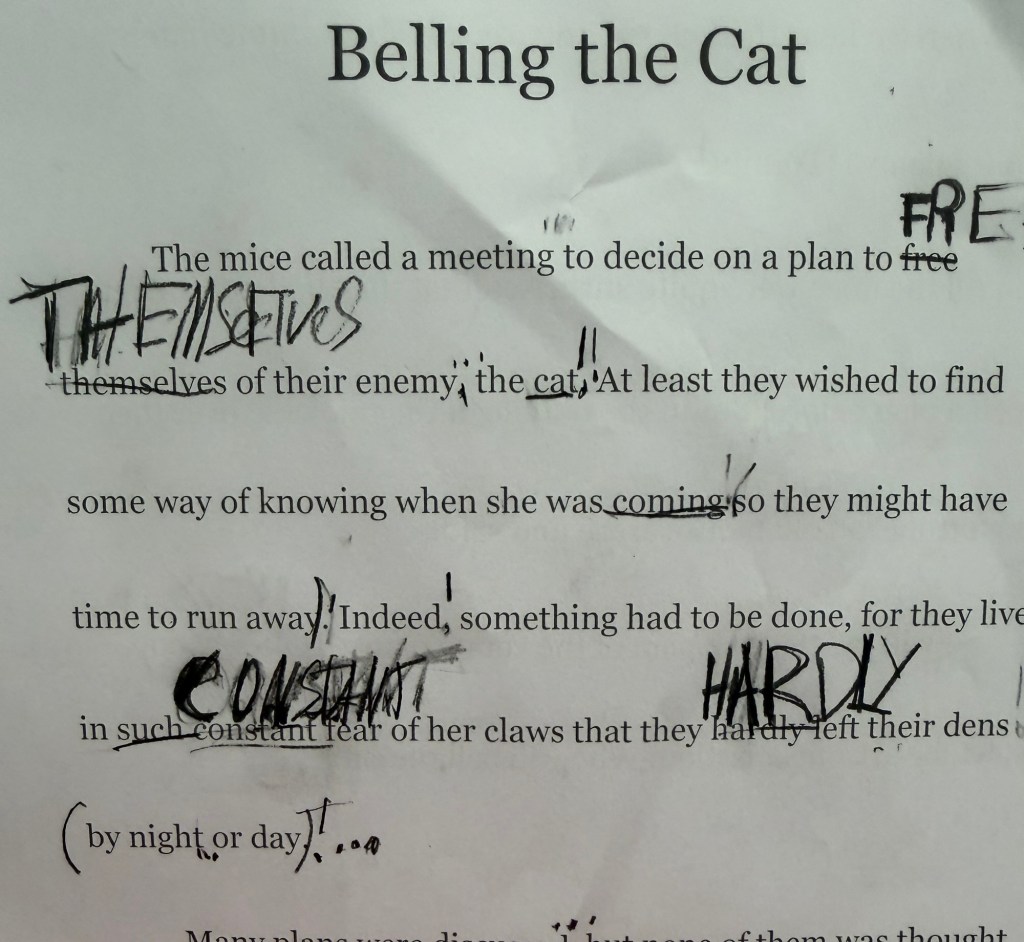 Belling the Cat
FRE
The mice called a meeting to decide on a plan to free
THEMSELVES
themselves of their enemy, the cat. At least they wished to find
some way of knowing when she was coming so they might have
time to run away. Indeed, something had to be done, for they live
CONSTANT HARDLY
in such constant fear of her claws that they hardly left their dens
(by night or day)!...
Many plans were but none of them was thought